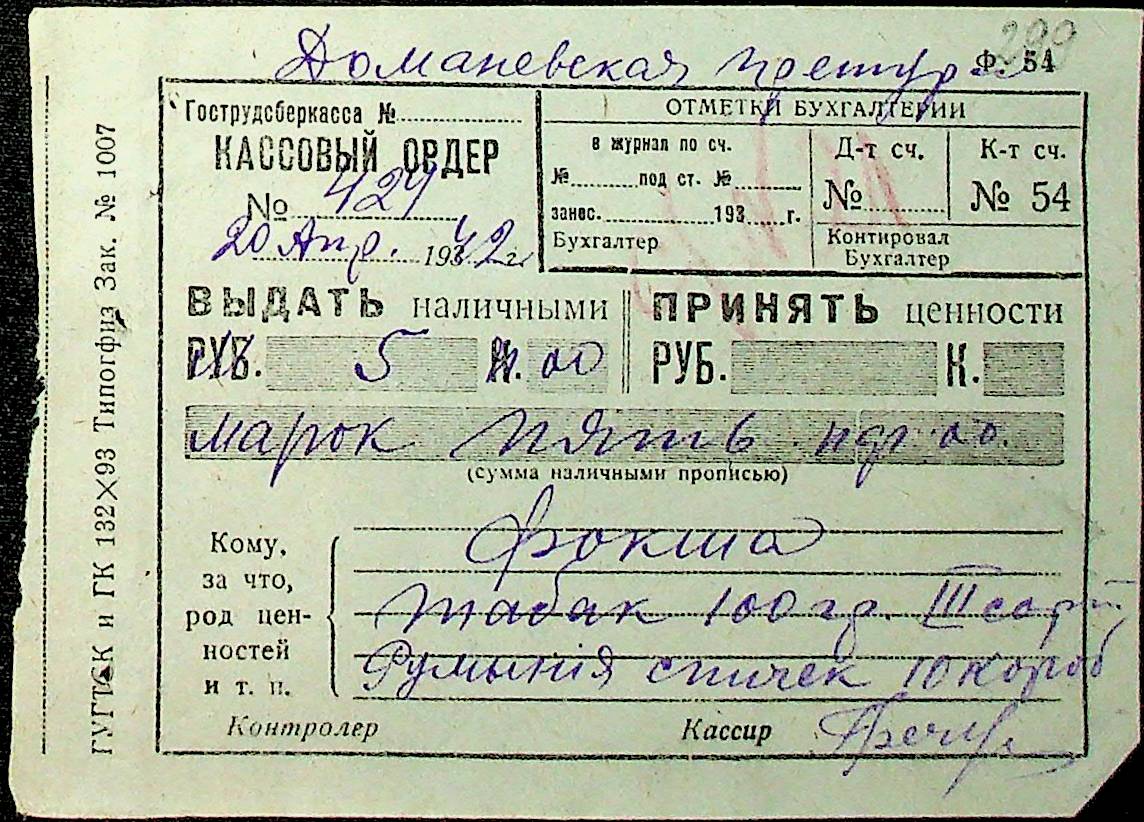 299
Доманевская претур
Ф. 54
Гострудсберкасса №
КАССОВЫЙ ОРДЕР
№ 424
20 Апр. 1942 г.
ОТМЕТКИ БУХГАЛТЕРИИ
в журнал по сч.
№ под ст. №
занес. 193 г.
Бухгалтер
Д-т сч.
№
К-т сч.
№ 54
Контировал
Бухгалтер
ВЫДАТЬ наличными
РУБ. 5 К. 00
ПРИНЯТЬ ценности
РУБ. К.
марок пять пф. 00.
(сумма наличными прописью)
Кому,
за что,
род цен-
ностей
и т. п.
Фокша
табак 100 гр. III сорт
Румыния спичек 10 короб
Контролер
Кассир
ГУГТК и ГК 132×93 Типогфиз Зак. № 1007